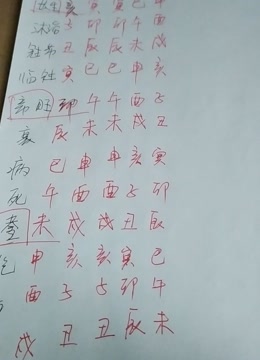 长生 亥 寅 寅 巳 申
沐浴 子 卯 卯 午 酉
冠带 丑 辰 辰 未 戌
临官 寅 巳 巳 申 亥
帝旺 卯 午 午 酉 子
衰 辰 未 未 戌 丑
病 巳 申 申 亥 寅
死 午 酉 酉 子 卯
墓 未 戌 戌 丑 辰
申 亥 亥 寅 巳
酉 子 子 卯 午
戌 丑 丑 辰 未